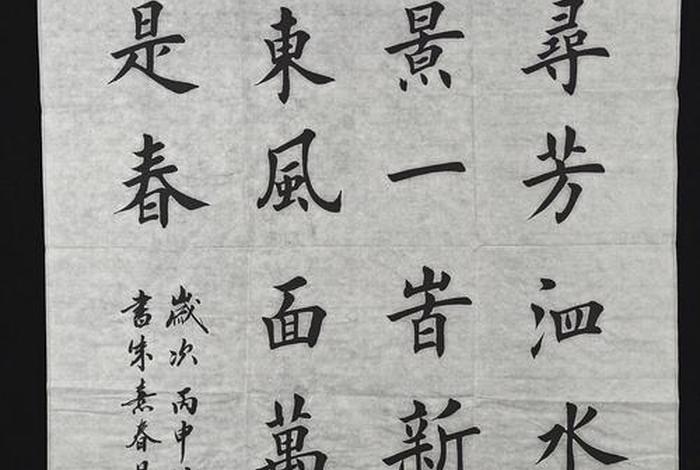 尋芳泗水
景一旹新
東風面萬
是春
歲次丙申
書朱熹春日